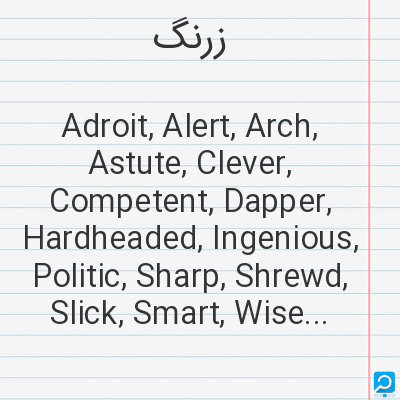 زرنگ
Adroit, Alert, Arch,
Astute, Clever,
Competent, Dapper,
Hardheaded, Ingenious,
Politic, Sharp, Shrewd,
Slick, Smart, Wise...